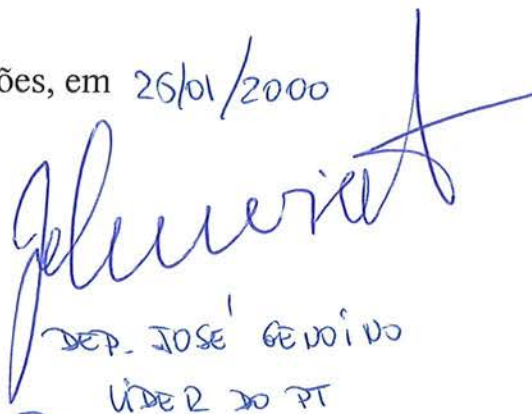 ões, em 26/01/2000
DEP. JOSÉ GENOÍNO
LÍDER DO PT